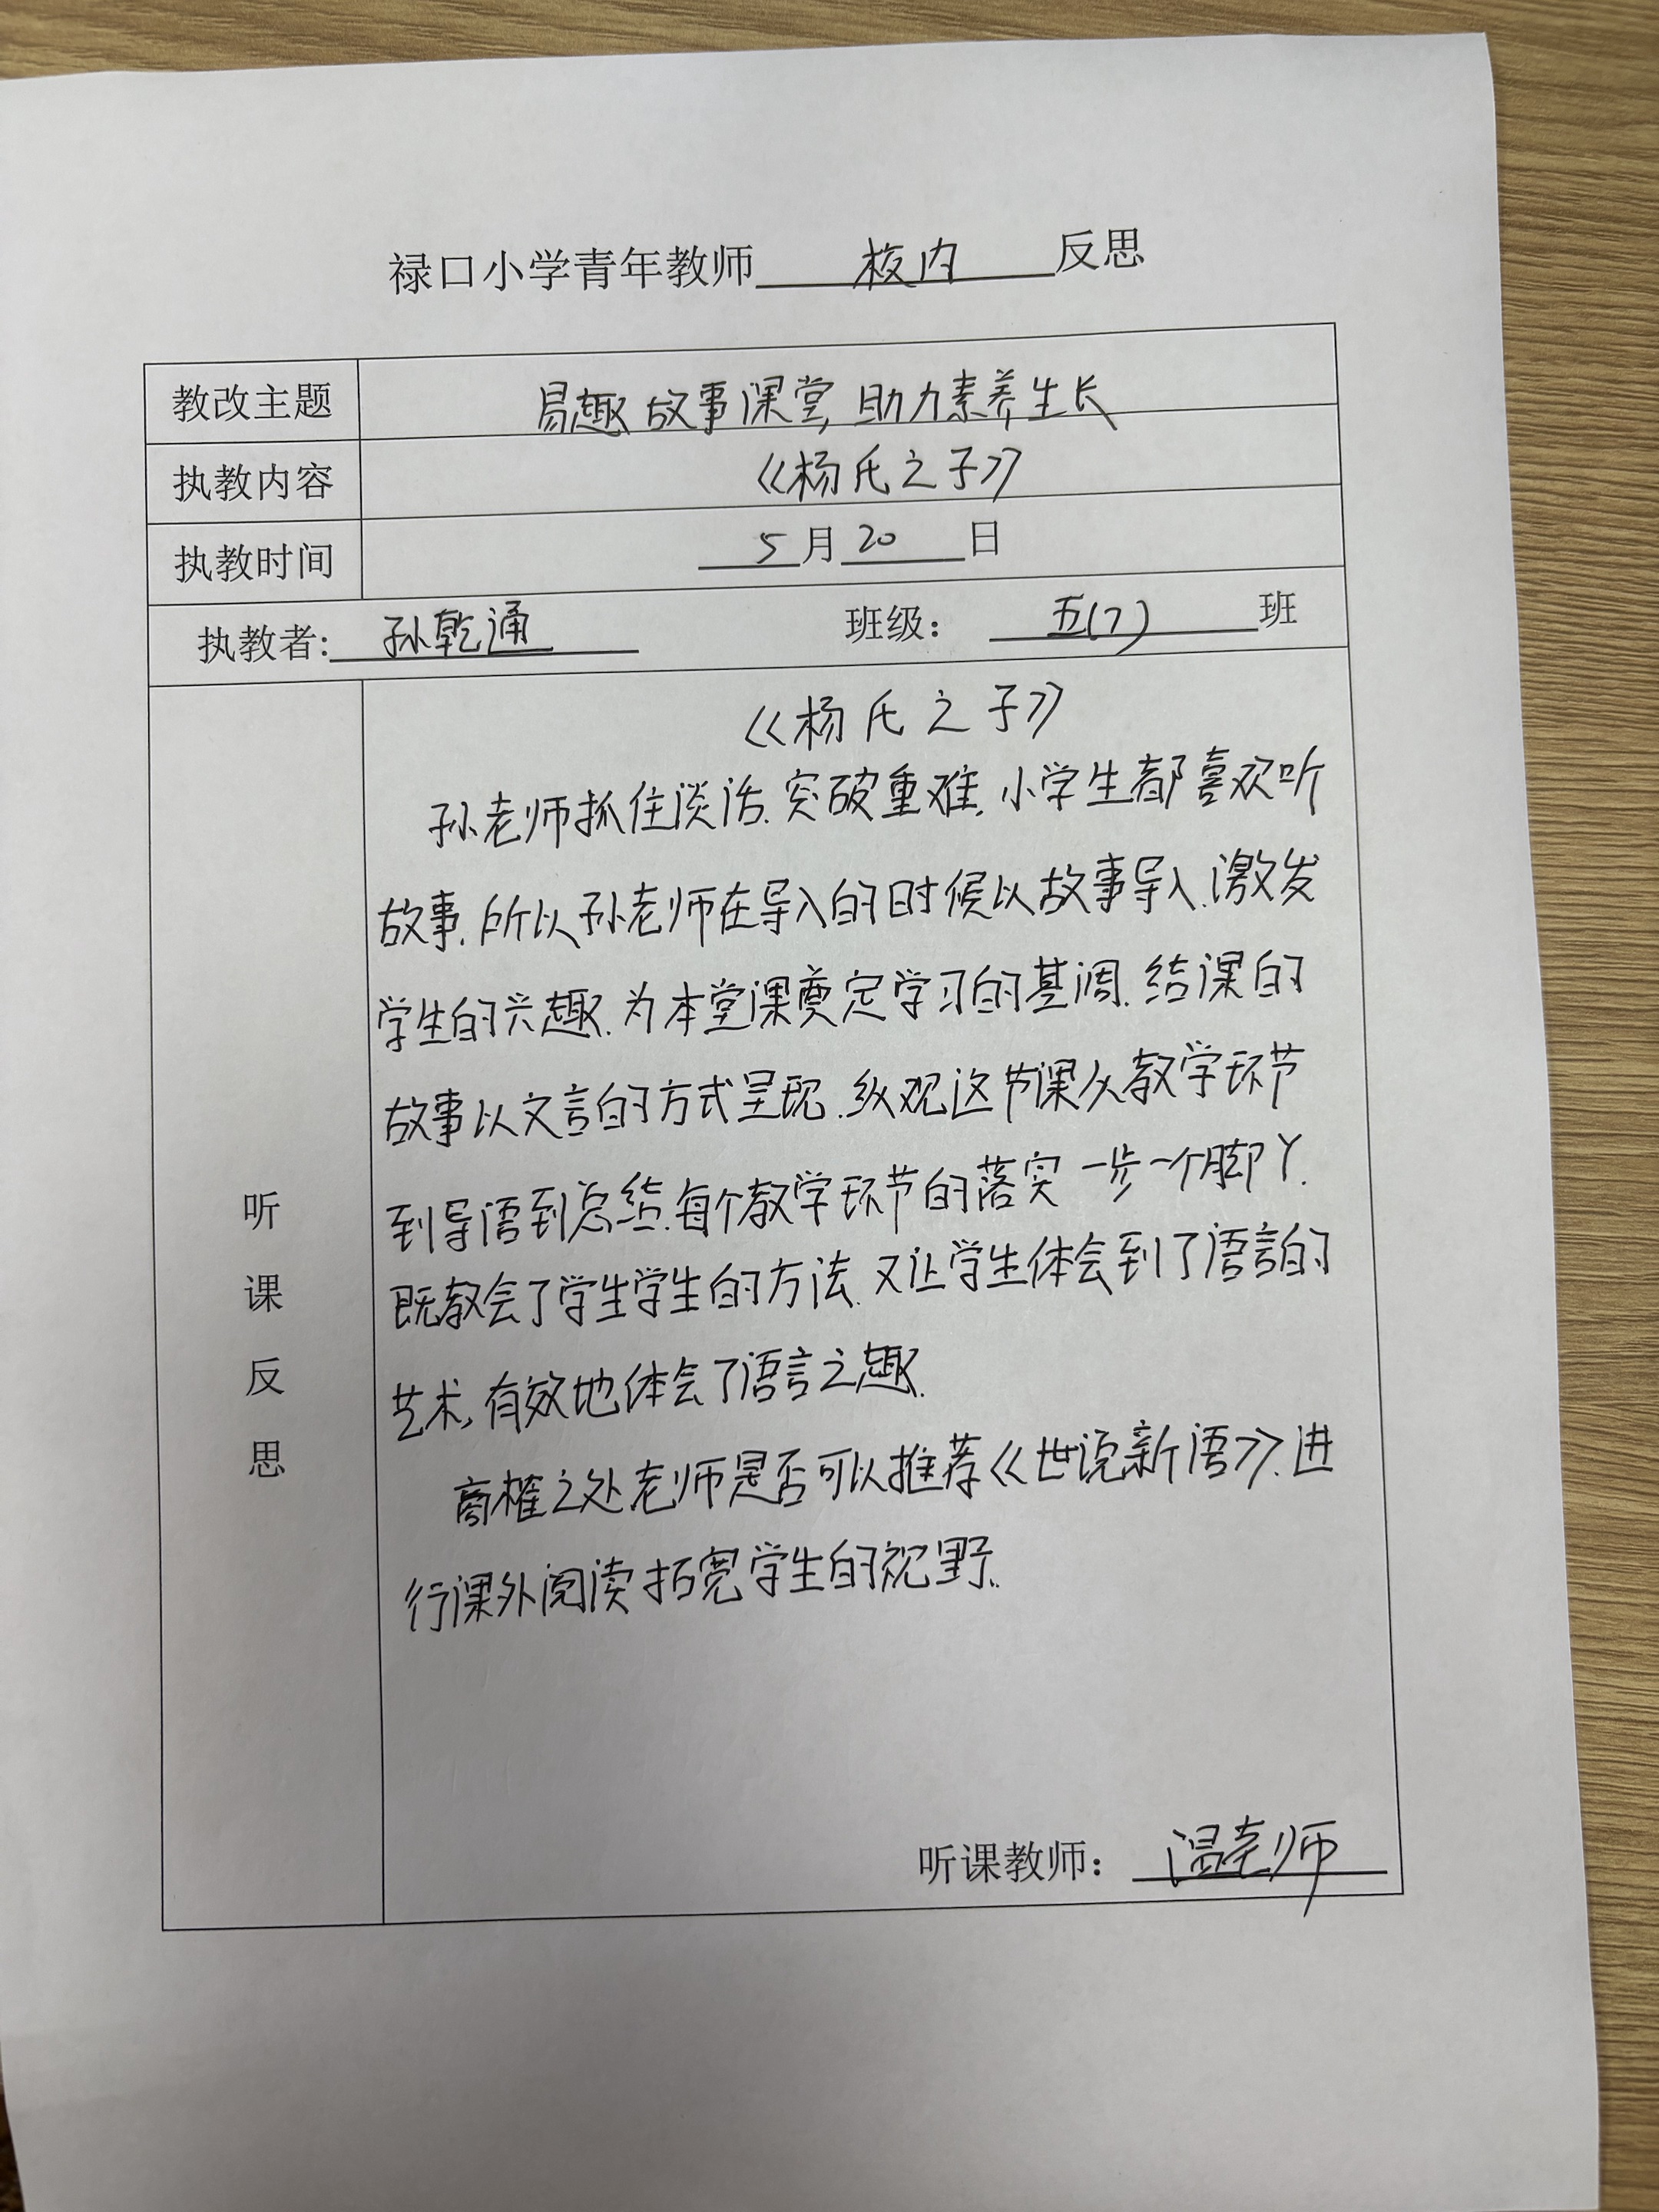 禄口小学青年教师 校内 反思
教改主题 易趣故事课堂,助力素养生长
执教内容 《杨氏之子》
执教时间 5月20日
执教者: 孙乾通 班级: 五(7) 班
《杨氏之子》
孙老师抓住谈话.突破重难.小学生都喜欢听
故事.所以孙老师在导入的时候以故事导入.激发
学生的兴趣.为本堂课奠定学习的基调.结课的
故事以文言的方式呈现.纵观这节课从教学环节
到导语到总结.每个教学环节的落实一步一个脚丫.
既教会了学生学生的方法.又让学生体会到了语言的
艺术,有效地体会了语言之趣.
商榷之处老师是否可以推荐《世说新语》.进
行课外阅读拓宽学生的视野.
听
课
反
思
听课教师: 温老师